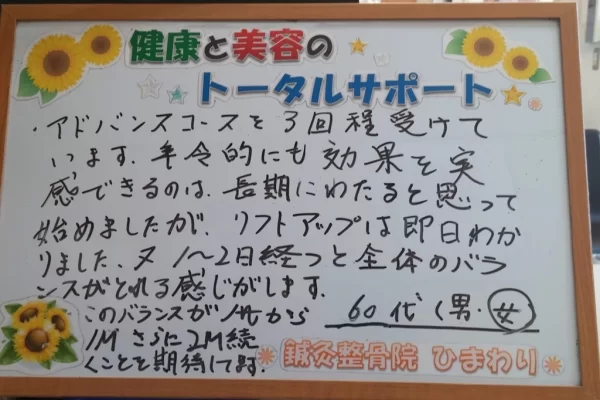 健康と美容の
トータルサポート
・アドバンスコースを3回程受けて
います。年令的にも効果を実
感できるのは、長期にわたると思って
始めましたが、リフトアップは即日わか
りました。又1〜2日経つと全体のバラ
ンスがとれる感じがします。
このバランスが1Wから
1M さらに2M続
くことを期待してます。
60代(男・女)
鍼灸整骨院 ひまわり